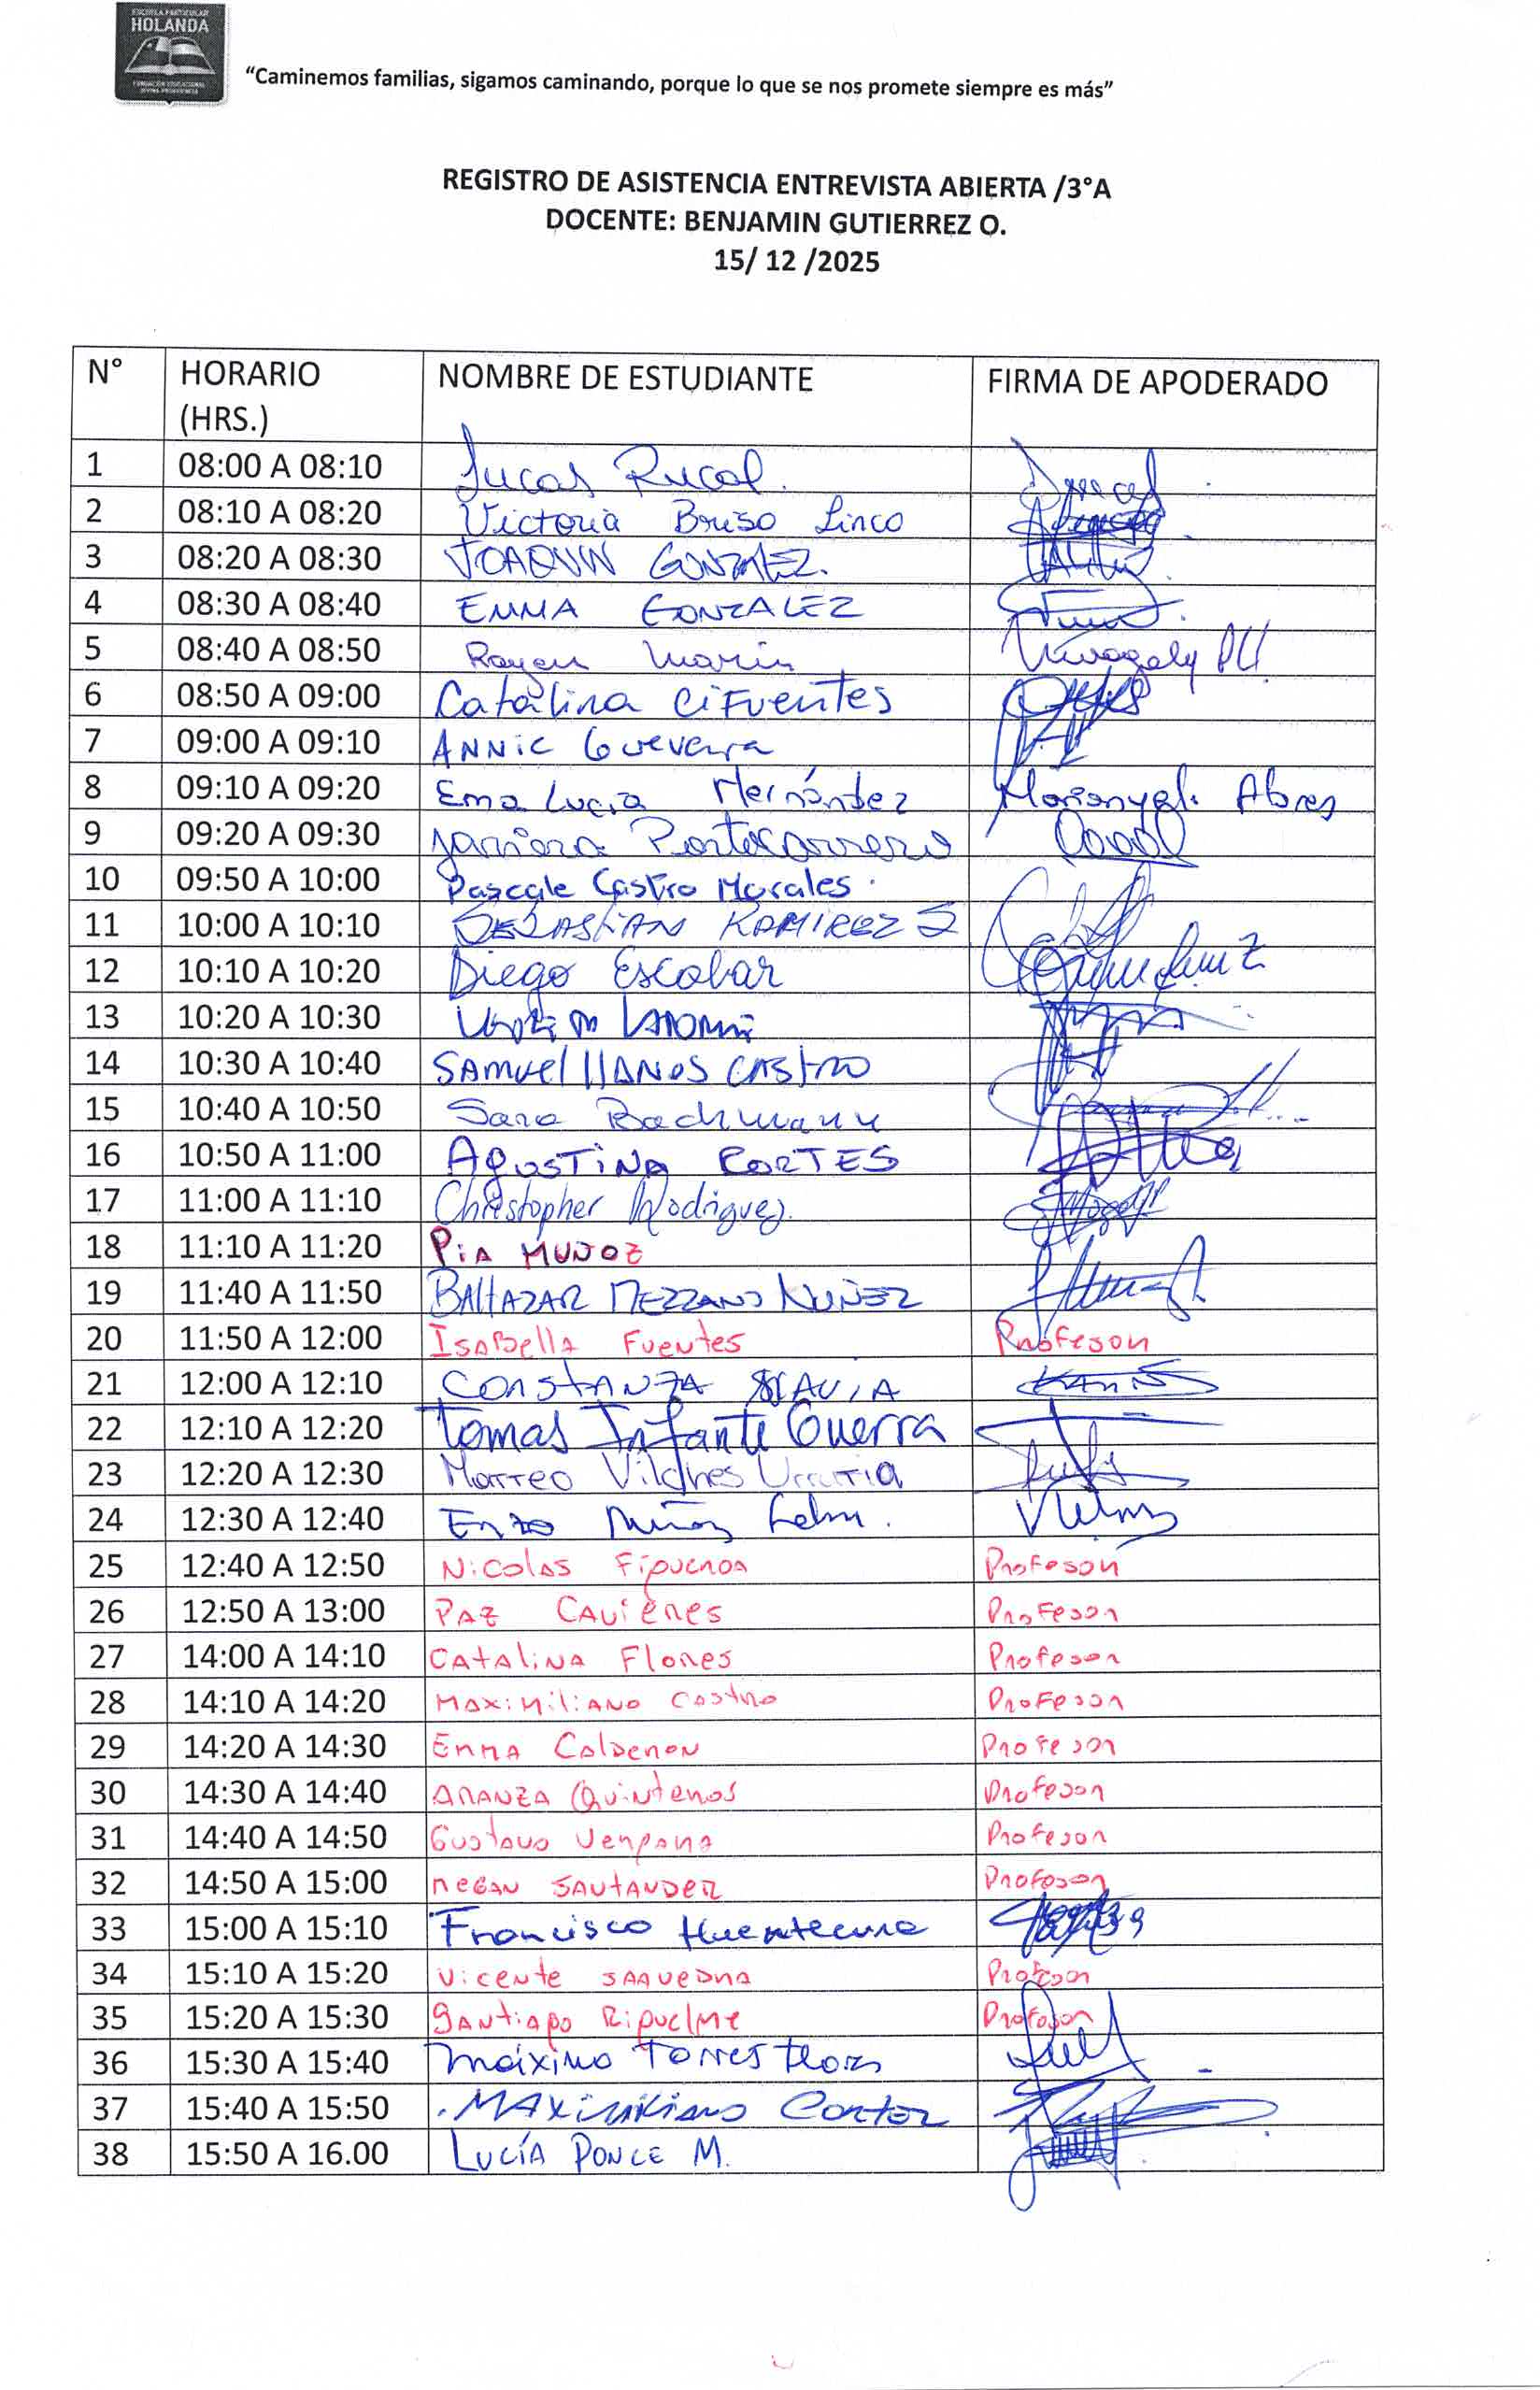 ESCUELA PARTICULAR
HOLANDA
"Caminemos familias, sigamos caminando, porque lo que se nos promete siempre es más"
REGISTRO DE ASISTENCIA ENTREVISTA ABIERTA /3°A
DOCENTE: BENJAMIN GUTIERREZ O.
15/ 12 /2025
N° HORARIO (HRS.) NOMBRE DE ESTUDIANTE FIRMA DE APODERADO
1 08:00 A 08:10 Lucas Rucal.
2 08:10 A 08:20 Victoria Briso Linco
3 08:20 A 08:30 JOAQUIN GONZALEZ.
4 08:30 A 08:40 EMMA GONZALEZ
5 08:40 A 08:50 Rayen Marin
6 08:50 A 09:00 Catalina CiFuentes
7 09:00 A 09:10 ANNIC Guevara
8 09:10 A 09:20 Ema Lucía Hernández
9 09:20 A 09:30 Portocarrero
10 09:50 A 10:00 Pascale Castro Morales.
11 10:00 A 10:10 SEBASTIAN RAMIREZ S
12 10:10 A 10:20 Diego Escobar
13 10:20 A 10:30
14 10:30 A 10:40 SAMuel LLANOS CASTRO
15 10:40 A 10:50 Sara Bachmann
16 10:50 A 11:00 AGUSTINA CORTES
17 11:00 A 11:10 Christopher Rodriguez.
18 11:10 A 11:20 PiA MUÑOZ
19 11:40 A 11:50 BALTAZAR MEZZANO NUÑEZ
20 11:50 A 12:00 ISABella Fuentes Profesor
21 12:00 A 12:10 CONSTANZA
22 12:10 A 12:20 Tomas Infante Guerra
23 12:20 A 12:30 Matteo Vilches Urrutia
24 12:30 A 12:40 Enzo Muñoz
25 12:40 A 12:50 Nicolas Figueroa Profesor
26 12:50 A 13:00 PAZ Cavieres Profesor
27 14:00 A 14:10 CATALINA Flores Profesor
28 14:10 A 14:20 MAXiMiliANO CASTRO Profesor
29 14:20 A 14:30 EMMA CalDeron Profesor
30 14:30 A 14:40 ARANZA Quinteros Profesor
31 14:40 A 14:50 Gustavo Vergara Profesor
32 14:50 A 15:00 MEGAN SANTANDER Profesor
33 15:00 A 15:10 Francisco Huentecura
34 15:10 A 15:20 Vicente SAAVEDRA Profesor
35 15:20 A 15:30 SANTIAGO RiquelMe Profesor
36 15:30 A 15:40 Máximo Torres
37 15:40 A 15:50 MAXiMiliano
38 15:50 A 16.00 LUCÍA PONCE M.